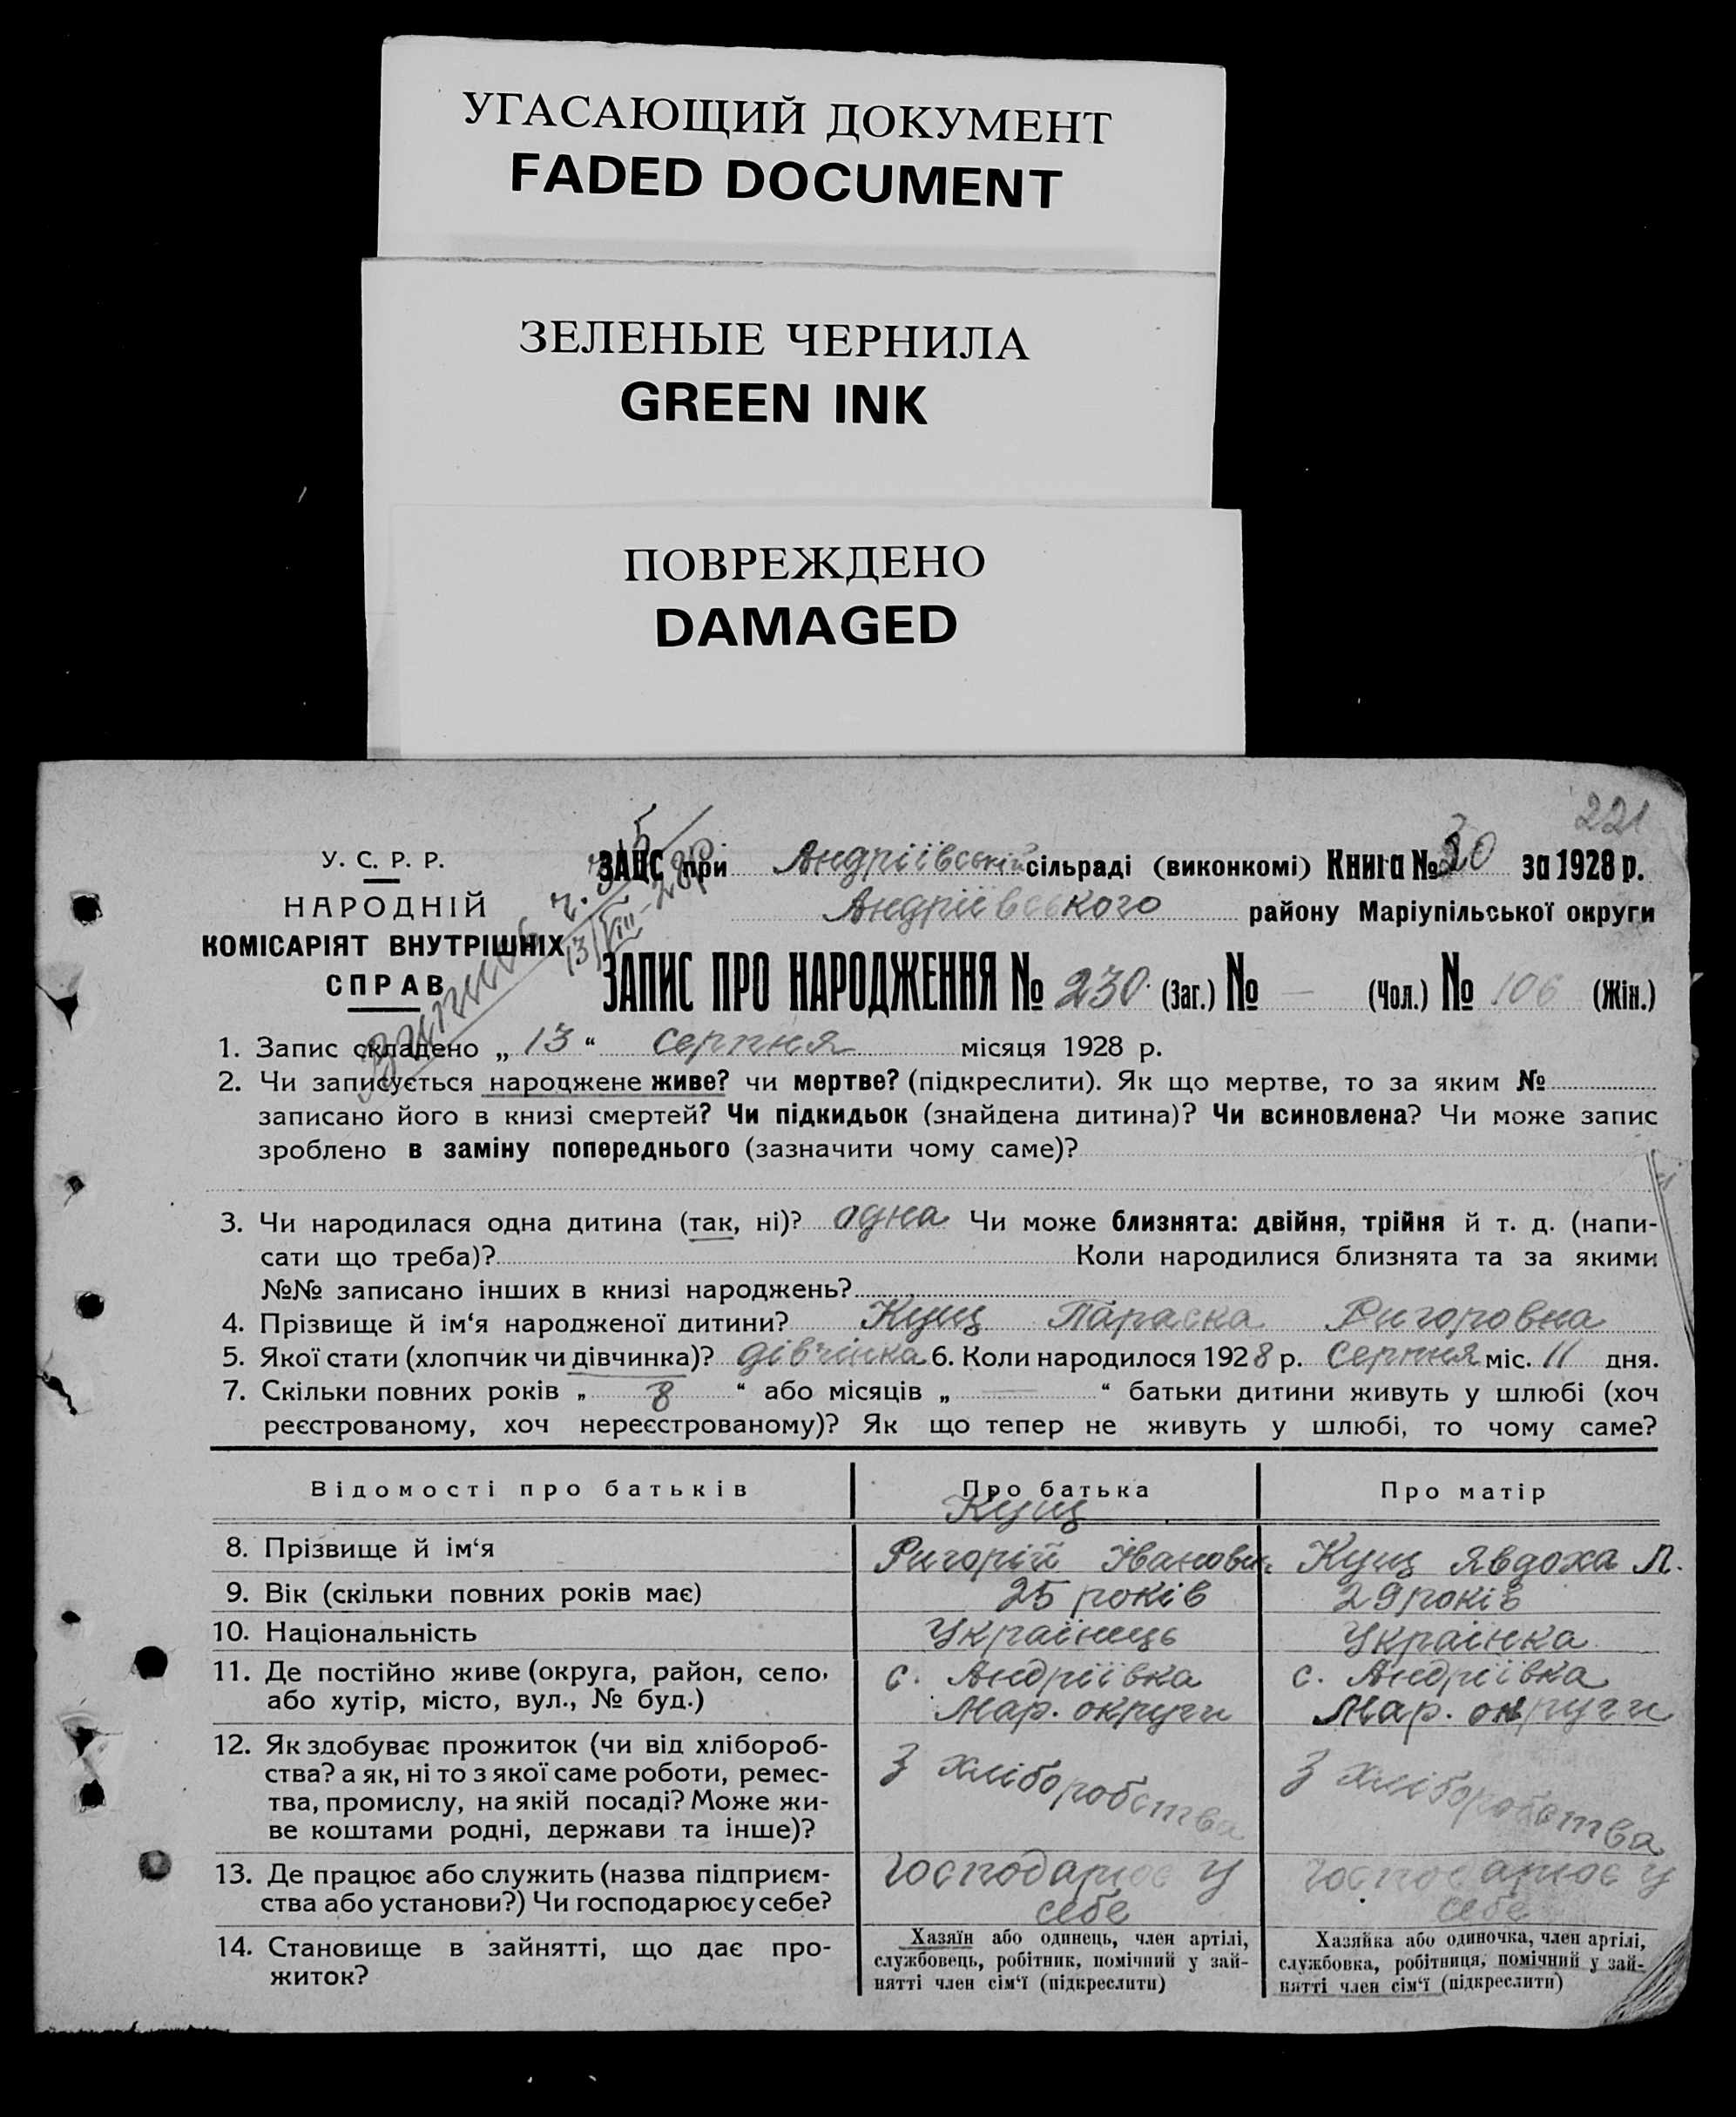 УГАСАЮЩИЙ ДОКУМЕНТ
FADED DOCUMENT
ЗЕЛЕНЫЕ ЧЕРНИЛА
GREEN INK
ПОВРЕЖДЕНО
DAMAGED
221
У. С. Р. Р.
НАРОДНІЙ
КОМІСАРІЯТ ВНУТРІШНІХ
СПРАВ
ЗАЦС при Андріївській сільраді (виконкомі) Книга № за 1928 р.
Андріївського району Маріупільської округи
ЗАПИС ПРО НАРОДЖЕННЯ № 230. (Заг.) № — (Чол.) № 106 (Жін.)
1. Запис складено „ 13 “ серпня місяця 1928 р.
2. Чи записується народжене живе? чи мертве? (підкреслити). Як що мертве, то за яким №
записано його в книзі смертей? Чи підкидьок (знайдена дитина)? Чи всиновлена? Чи може запис
зроблено в заміну попереднього (зазначити чому саме)?
3. Чи народилася одна дитина (так, ні)? одна Чи може близнята: двійня, трійня й т. д. (напи-
сати що треба)? Коли народилися близнята та за якими
№№ записано інших в книзі народжень?
4. Прізвище й ім‘я народженої дитини? Кущ Параска Ригоровна
5. Якої статі (хлопчик чи дівчинка)? дівчінка 6. Коли народилося 1928 р. серпня міс. 11 дня.
7. Скільки повних років „ 8 “ або місяців „ — “ батьки дитини живуть у шлюбі (хоч
реєстрованому, хоч нереєстрованому)? Як що тепер не живуть у шлюбі, то чому саме?
Відомості про батьків Про батька Про матір
Кущ
8. Прізвище й ім‘я Ригорій Іванович Кущ Явдоха П.
9. Вік (скільки повних років має) 25 років 29 років
10. Національність Українець Українка
11. Де постійно живе (округа, район, село, с. Андріївка с. Андріївка
або хутір, місто, вул., № буд.) Мар. округи Мар. округи
12. Як здобуває прожиток (чи від хлібороб- З хліборобства З хліборобства
ства? а як, ні то з якої саме роботи, ремес-
тва, промислу, на якій посаді? Може жи-
ве коштами родні, держави та інше)?
13. Де працює або служить (назва підприєм- господарює у господарює у
ства або установи?) Чи господарює у себе? себе себе
14. Становище в зайнятті, що дає про-
житок?
Хазяїн або одинець, член артілі,
службовець, робітник, помічний у зай-
нятті член сім‘ї (підкреслити)
Хазяйка або одиночка, член артілі,
службовка, робітниця, помічний у зай-
нятті член сім‘ї (підкреслити)